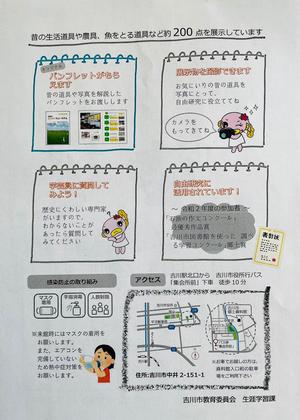 昔の生活道具や農具、魚をとる道具など約200点を展示しています
パンフレットがもら
えます
昔の道具や写真を解説した
パンフレットをお渡しします
展示物を撮影できます
お気にいりの昔の道具を
写真にとって、
自由研究に役立ててね
カメラを
もってきてね
学芸員に質問して
みよう!
歴史にくわしい専門家
がいますので、
わからないことが
あったら質問して
みてください
自由研究に
活用されています!
～令和2年度の参加者～
最優秀作品賞
表彰状
感染防止の取り組み
マスク
着用
手指消毒
人数制限
※来館時にはマスクの着用を
お願いします。
また、エアコンを
完備していない
ため熱中症対策を
お願いします。
アクセス
吉川駅北口から 吉川市役所行バス
「集会所前」下車 徒歩10分
住所:吉川市中井2-151-1
※お車でお越しの方は、
資料館入口前の駐車
場をご利用ください。
吉川市教育委員会 生涯学習課